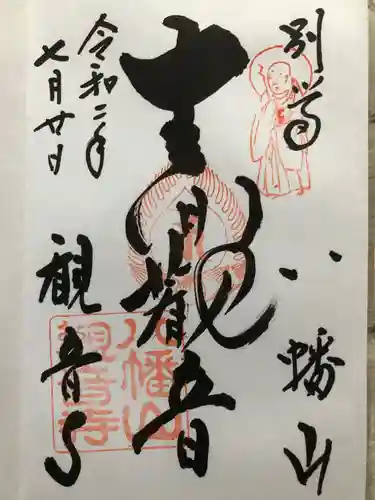 八幡山
十一面観音
令和二年
七月廿日
観音寺
八幡山
観音寺